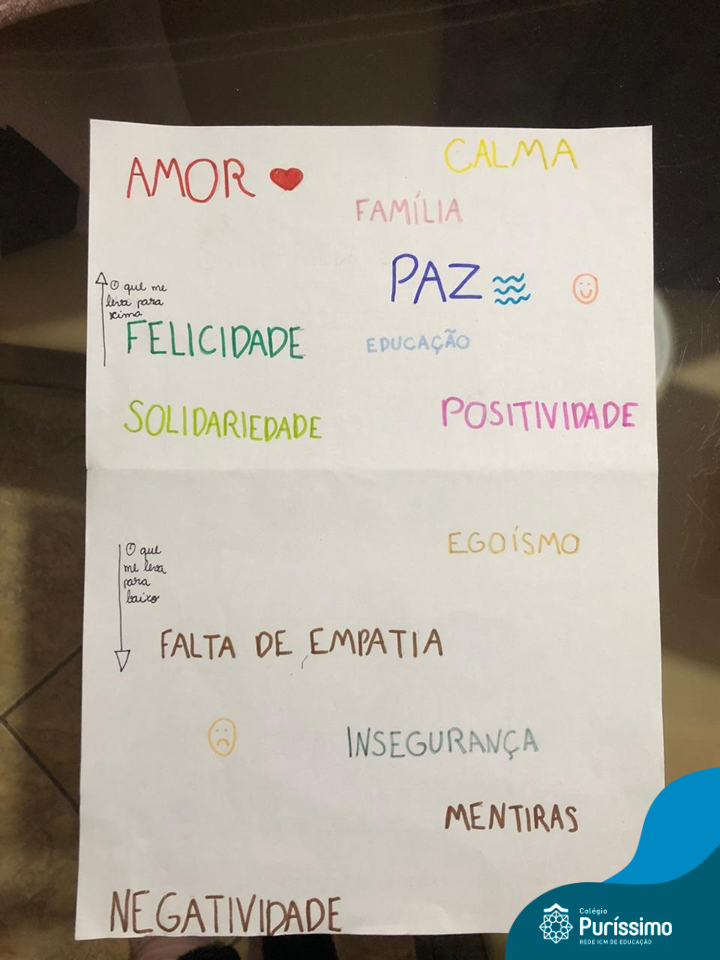 AMOR
CALMA
FAMÍLIA
PAZ
O que me
leva para
cima
FELICIDADE
EDUCAÇÃO
SOLIDARIEDADE
POSITIVIDADE
EGOÍSMO
O que
me leva
para
baixo
FALTA DE EMPATIA
INSEGURANÇA
MENTIRAS
NEGATIVIDADE
Colégio
Puríssimo
REDE ICM DE EDUCAÇÃO